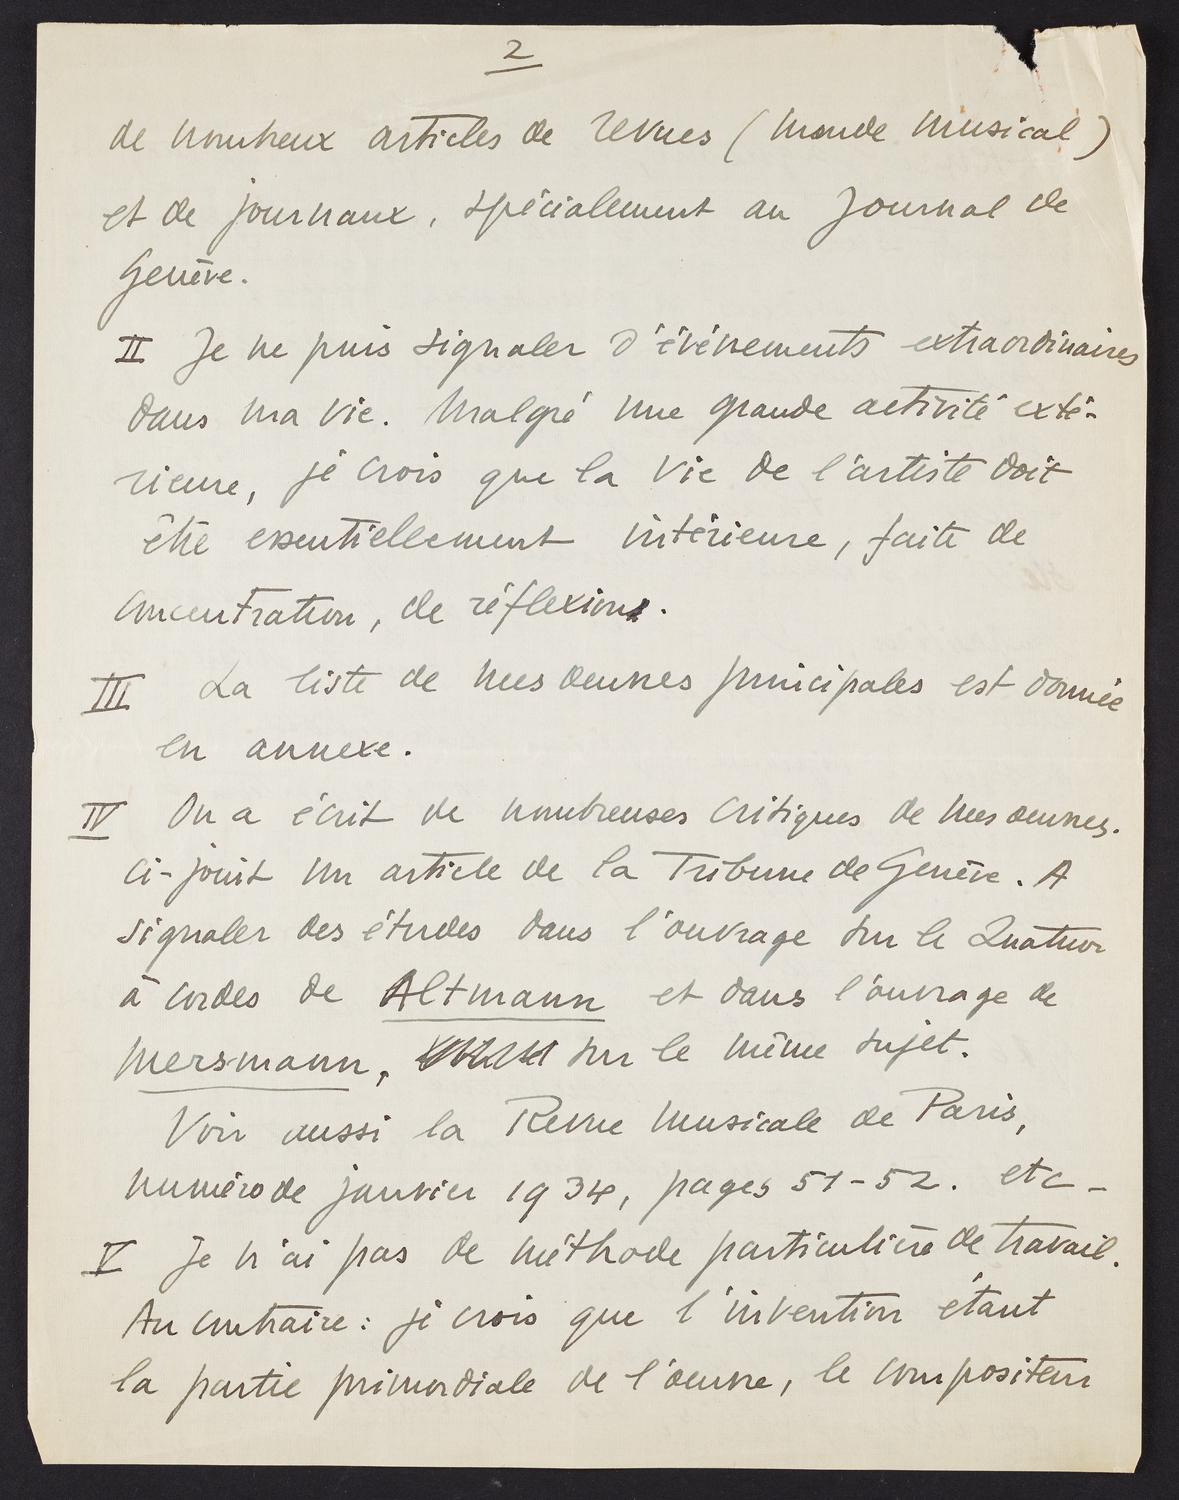 2
de nombreux articles de revues (Monde Musical)
et de journaux, spécialement au Journal de
Genève.
II Je ne puis signaler d'événements extraordinaires
dans ma vie. Malgré une grande activité exté-
rieure, je crois que la vie de l'artiste doit
être essentiellement intérieure, faite de
concentration, de réflexion.
III La liste de mes oeuvres principales est donnée
en annexe.
IV On a écrit de nombreuses critiques de mes oeuvres.
Ci-joint un article de la Tribune de Genève. A
signaler des études dans l'ouvrage sur le Quatuor
à cordes de Altmann et dans l'ouvrage de
Mersmann, sur le même sujet.
Voir aussi la Revue Musicale de Paris,
numéro de janvier 1934, pages 51-52. etc -
V Je n'ai pas de méthode particulière de travail.
Au contraire: je crois que l'invention étant
la partie primordiale de l'oeuvre, le compositeur